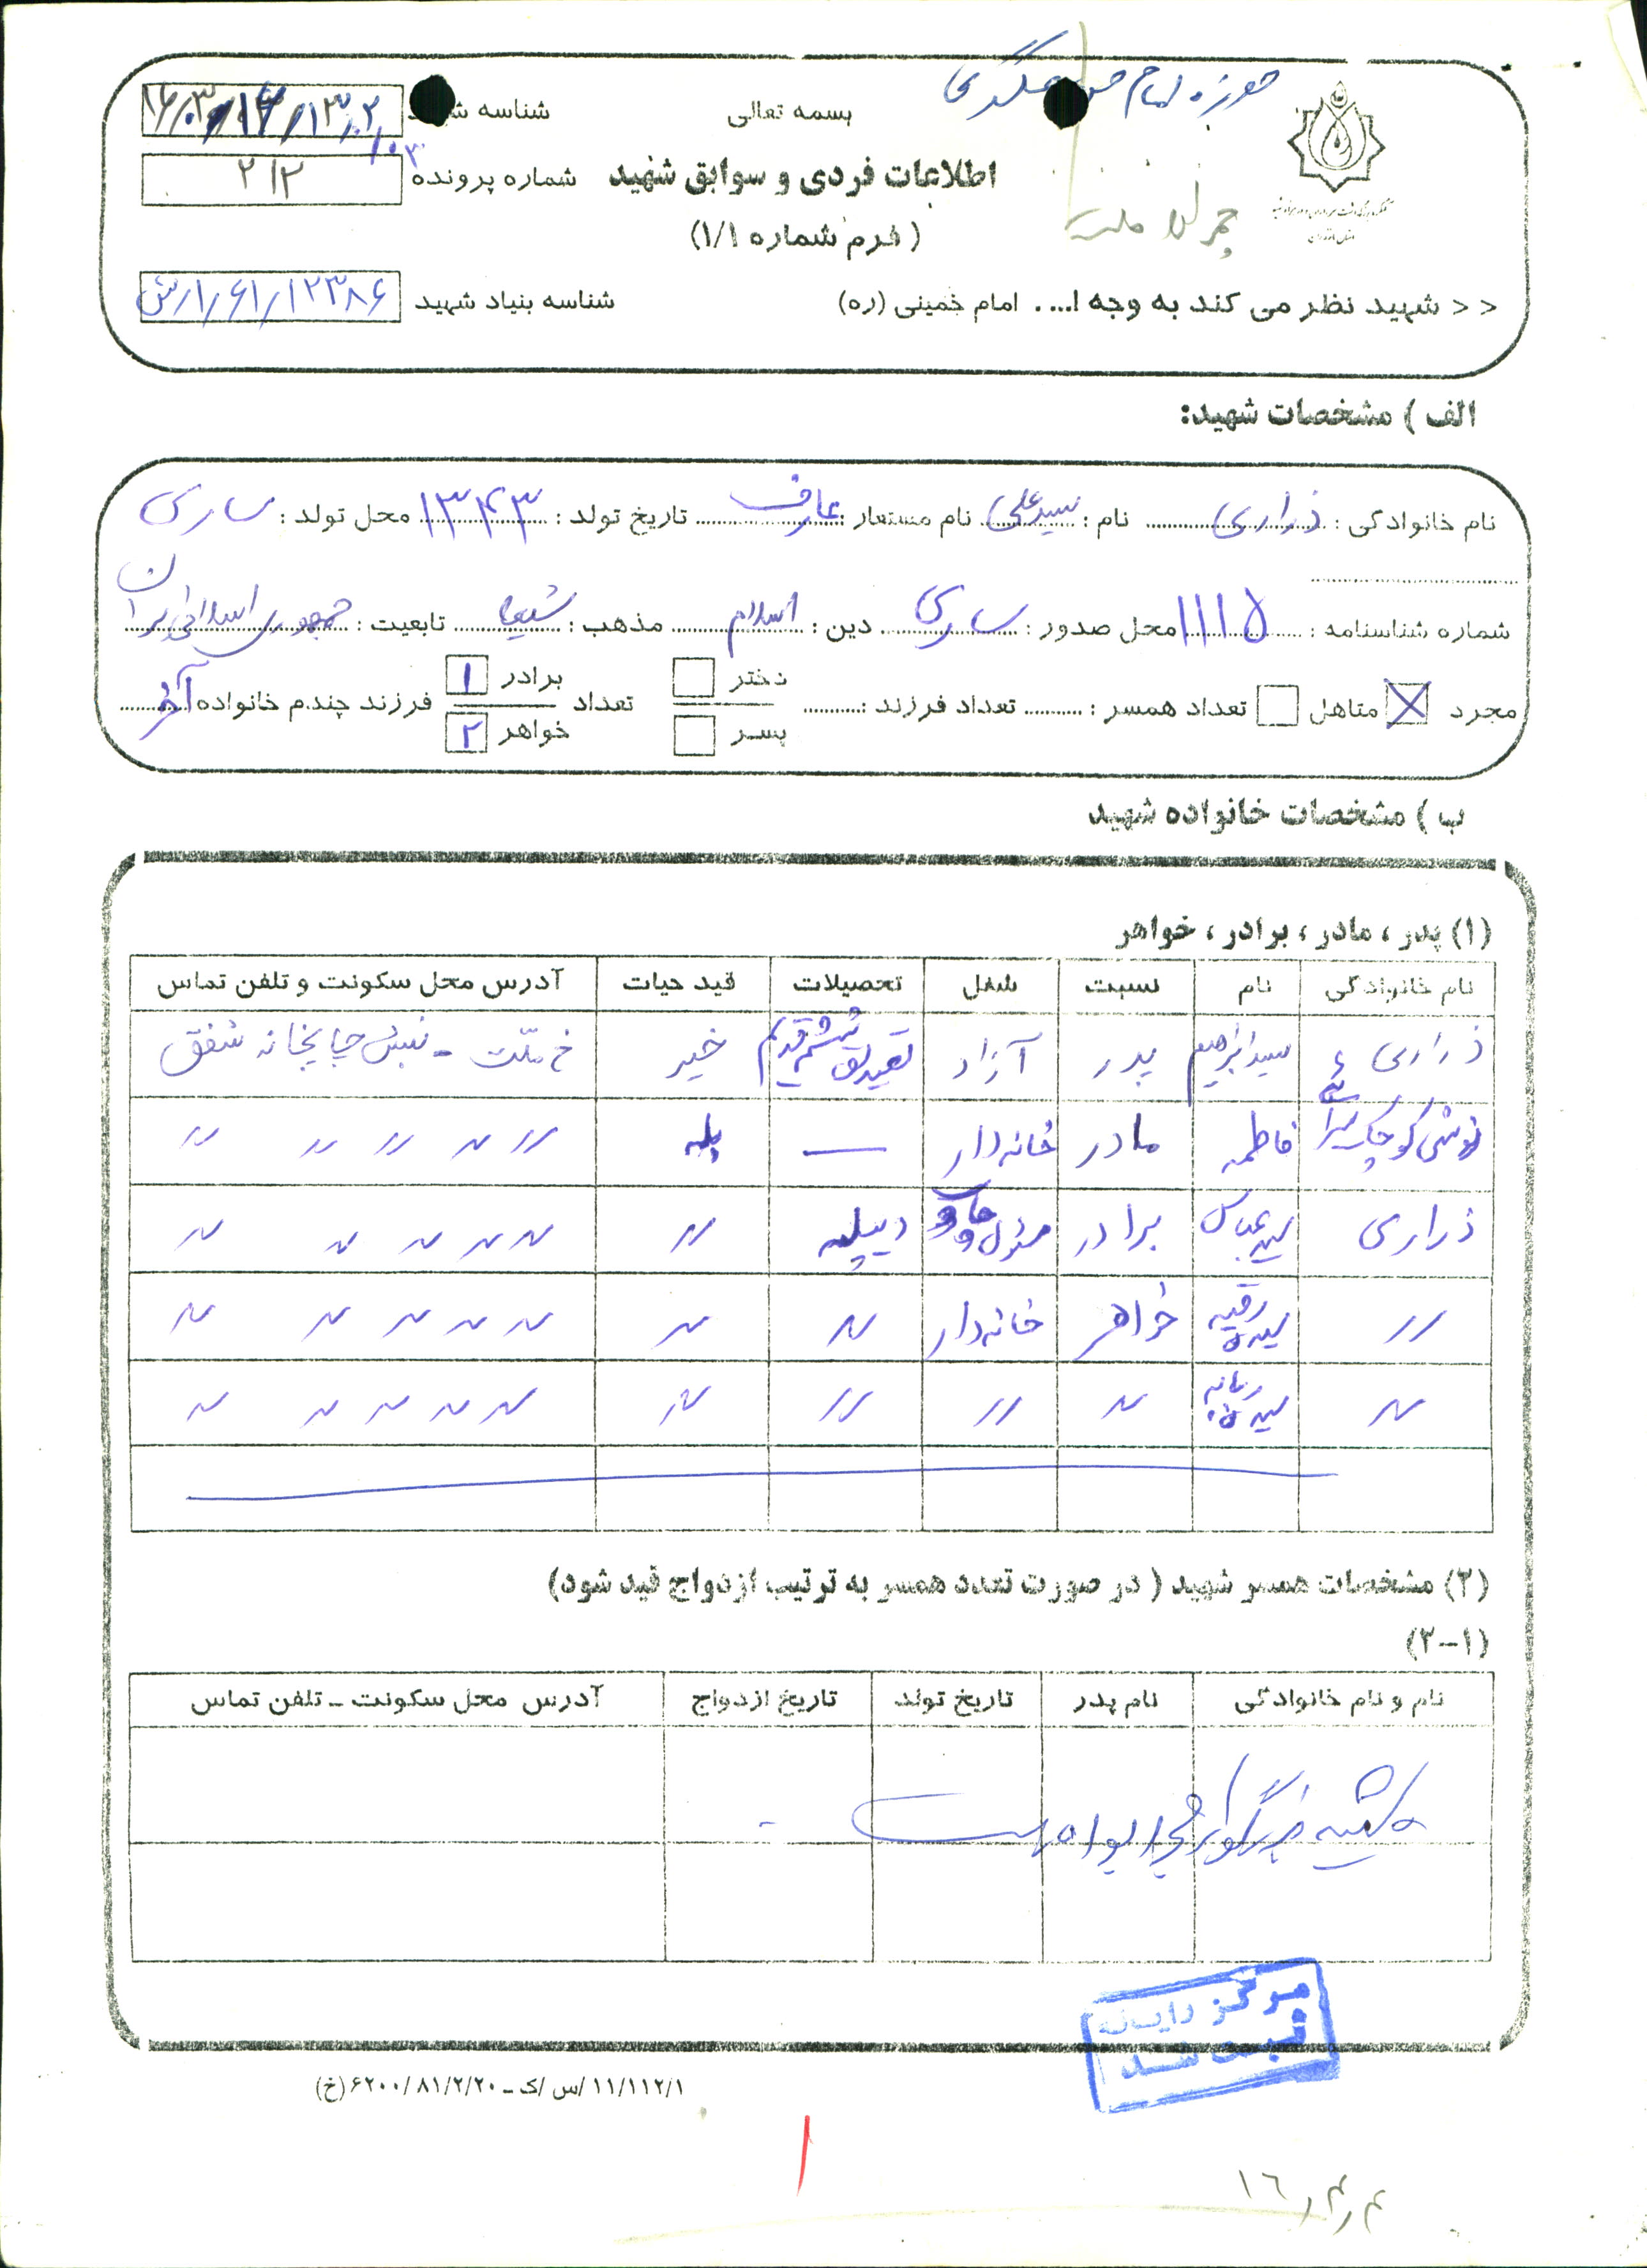 بسمه تعالی
شناسه
اطلاعات فردی و سوابق شهید
شماره پرونده ۲۱۲
(فرم شماره ۱/۱)
< < شهید نظر می کند به وجه ا.... امام خمینی (ره)
شناسه بنیاد شهید
الف ) مشخصات شهید:
نام خانوادگی : ذراری نام : سیدعلی نام مستعار : عارف تاریخ تولد : ۱۳۴۳ محل تولد : ساری
شماره شناسنامه : ۱۱۱۵ محل صدور : ساری دین : اسلام مذهب : شیعه تابعیت : جمهوری اسلامی ایران
مجرد متاهل تعداد همسر : تعداد فرزند : دختر پسر تعداد برادر ۱ خواهر ۲ فرزند چندم خانواده آخر
ب ) مشخصات خانواده شهید
(۱) پدر ، مادر ، برادر ، خواهر
نام خانوادگی نام نسبت شغل تحصیلات قید حیات آدرس محل سکونت و تلفن تماس
ذراری سیدابراهیم پدر آزاد تصدیق ششم قدیم خیر خ ملت - نبش چاپخانه شفق
فاطمه مادر خانه‌دار — بله 〃 〃 〃 〃 〃
ذراری سیدعباس برادر دیپلم 〃 〃 〃 〃 〃 〃
〃 سیده رقیه خواهر خانه‌دار 〃 〃 〃 〃 〃 〃 〃
〃 سیده 〃 〃 〃 〃 〃 〃 〃 〃 〃
(۲) مشخصات همسر شهید ( در صورت تعدد همسر به ترتیب ازدواج قید شود)
(۲-۱)
نام و نام خانوادگی نام پدر تاریخ تولد تاریخ ازدواج آدرس محل سکونت - تلفن تماس
مرکز رایانه
ثبت شد
۱۱/۱۱۲/۱/س/ک - ۶۲۰۰/۸۱/۲/۲۰ (خ)
۱